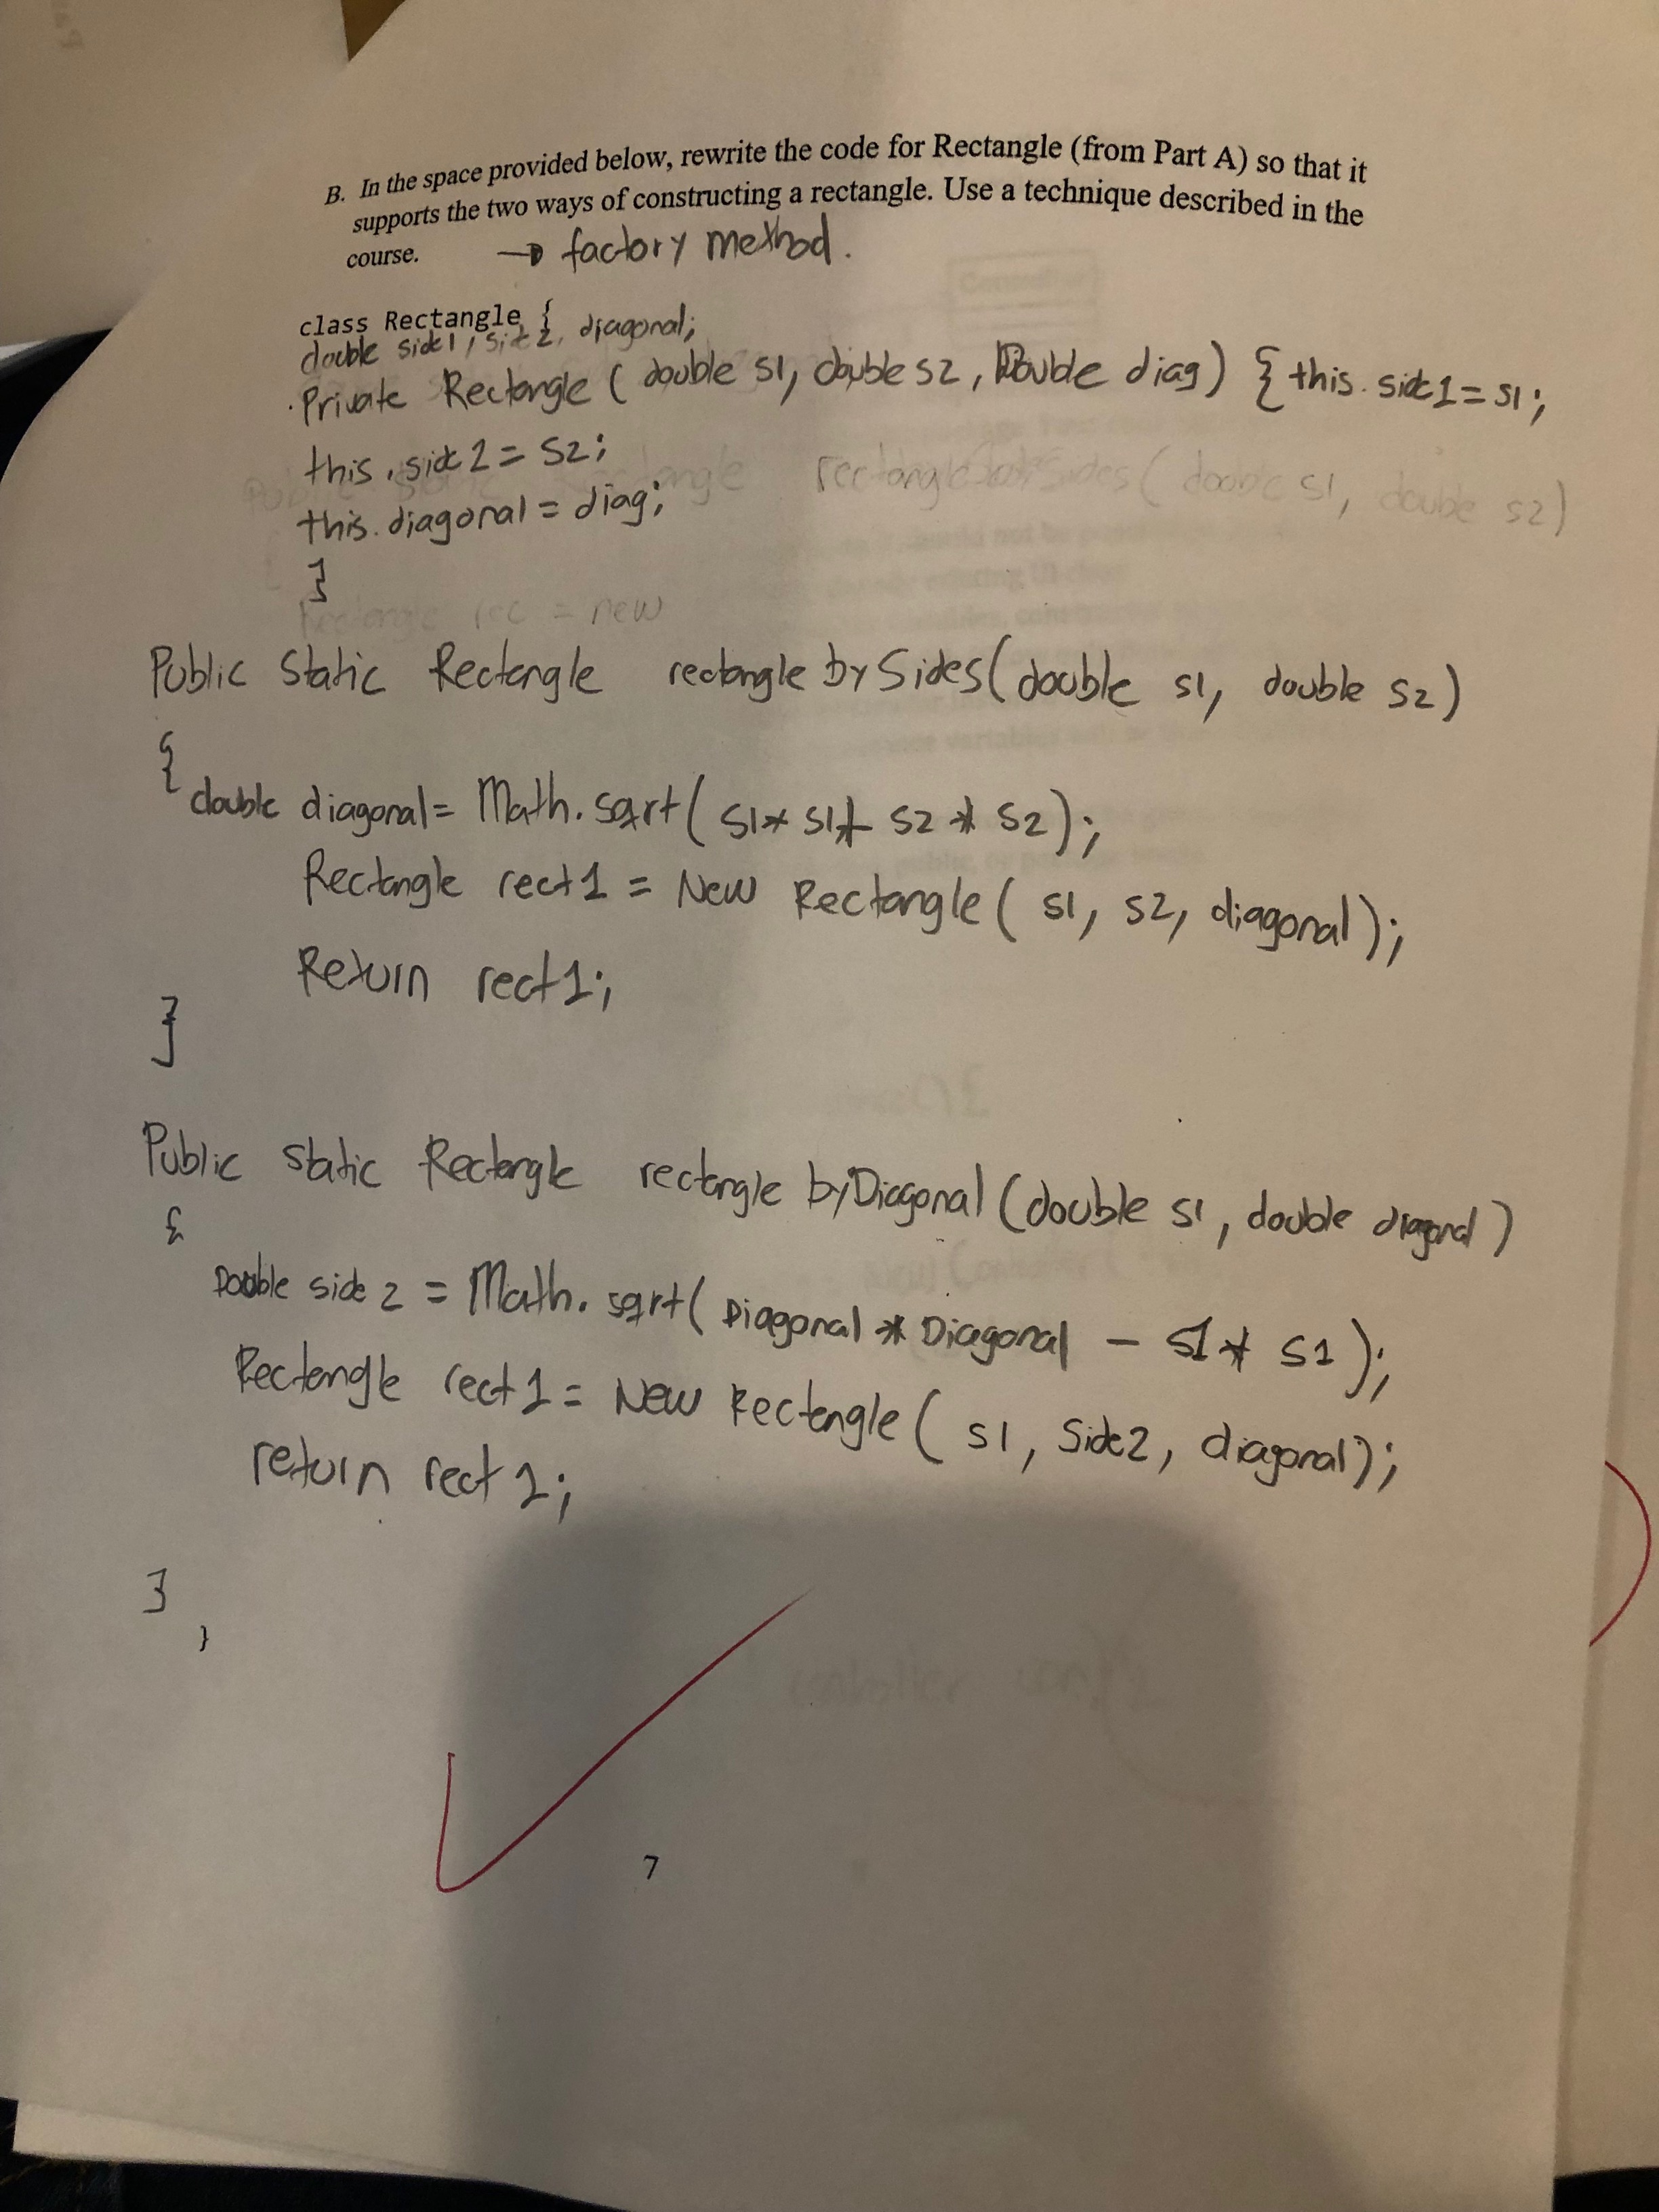 B. In the space provided below, rewrite the code for Rectangle (from Part A) so that it
supports the two ways of constructing a rectangle. Use a technique described in the
course. → factory method.
class Rectangle {
double side1, side2, diagonal;
Private Rectangle ( double s1, double s2, Double diag) { this.side1 = s1;
this.side2 = s2;
Public Static Rectangle rectangle Sides( double s1, double s2)
this.diagonal = diag;
}
Rectangle rec = new
Public Static Rectangle rectangle by Sides( double s1, double s2)
{
double diagonal = Math.sqrt( s1* s1+ s2 * s2);
Rectangle rect1 = New Rectangle( s1, s2, diagonal);
Return rect1;
}
Public static Rectangle rectangle byDiagonal (double s1, double diagonal)
{
Double side 2 = Math.sqrt( Diagonal * Diagonal - s1* s1 );
Rectangle rect1 = New Rectangle ( s1, Side2, diagonal);
return rect 1;
}
}
7